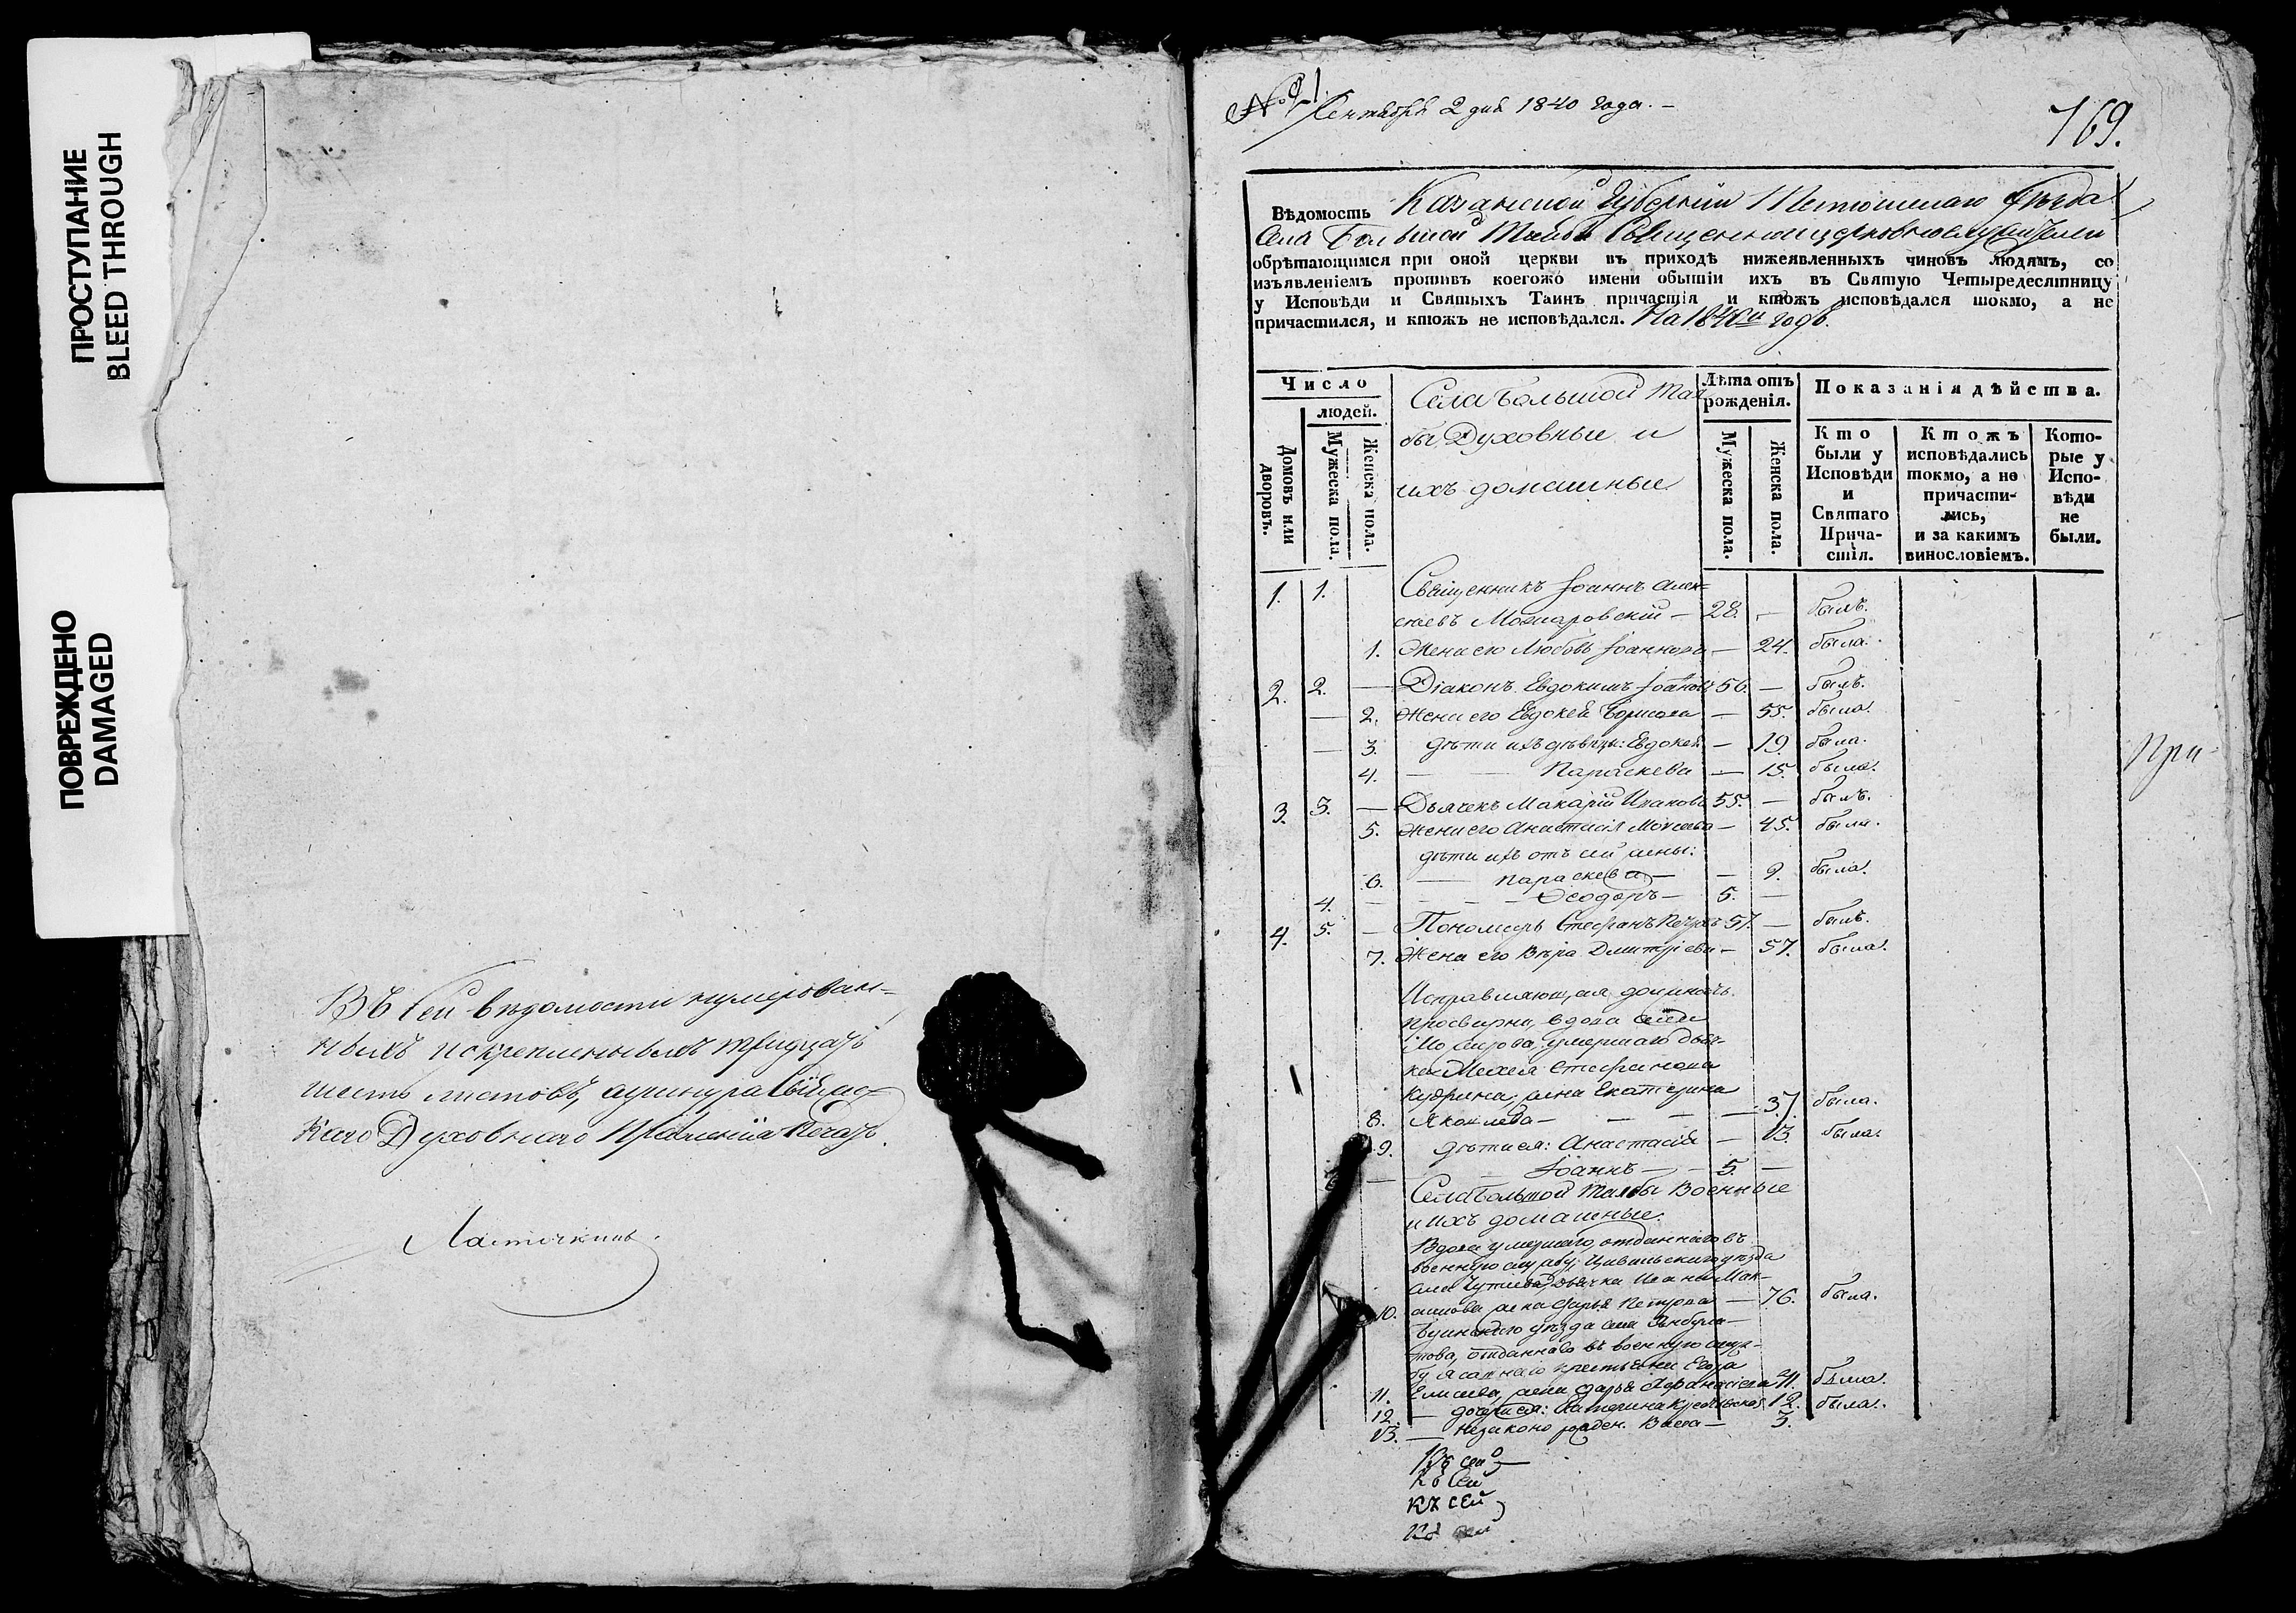 ПРОСТУПАНИЕ
BLEED THROUGH
ПОВРЕЖДЕНО
DAMAGED
Въ сей вѣдомости нумерован-
ныхъ и скрепленныхъ тридцать
шесть листовъ, а у шнура
Духовнаго Правленія печать.
Ласточкинъ
Сентября 2 дня 1840 года. -
769.
Вѣдомость Казанской Губерніи Тетюшскаго уѣзда
Села Большой Таябы Священноицерковнослужители
обрѣтающимся при оной церкви въ приходѣ нижеявленныхъ чиновъ людямъ, со
изъявленіемъ противъ коегожо имени обытіи ихъ въ Святую Четыредесятницу
у Исповѣди и Святыхъ Таинъ причастія и ктожъ исповѣдался токмо, а не
причастился, и ктожъ не исповѣдался. На 1840й годъ.
Число
людей.
Домовъ или дворовъ.
Мужеска пола.
Женска пола.
Села Большой Тая-
бы Духовные и
ихъ домашные
Лѣта отъ рожденія.
Мужеска пола.
Женска пола.
Показанія дѣйства.
Кто были у Исповѣди и Святаго Прича- стія.
Ктожъ исповѣдались токмо, а не причасти- лись, и за какимъ винословіемъ.
Кото- рые у Испо- вѣди не были.
1. 1. Священникъ Іоаннъ Алек-
сѣевъ Можаровскій - 28. - былъ.
1. Жена его Любовь Іоаннова - 24. была.
2. 2. — Діаконъ Евдокимъ Іоановъ 56. — былъ.
— 2. Жена его Евдокея Борисова — 55. была.
— 3. дѣти ихъ дѣвицы: Евдокея — 19. была.
4. — — Параскева — 15. была.
3. 3. — Дьячекъ Макарій Ивановъ 55. — былъ.
5. Жена его Анастасія Моисева — 45. была.
дѣти ихъ отъ сей жены:
6. — Параскева — — 9. была.
4. — — — Ѳеодоръ — 5. —
4. 5. — Пономарь Стефанъ Петровъ 57. — былъ.
7. Жена его Вѣра Дмитріева — 57. была.
Исправляющая должность
просвирни, вдова села
умершаго дьяч-
ка Стефанова
Кудрина, жена Екатерина
8. Яковлева — — — — 37. была.
9. дѣти ея: Анастасія — 13. была.
6. — — Іоаннъ — — 5. —
Села Большой Таябы Военные
и ихъ домашные.
Вдова умершаго, отданнаго въ
военную службу, Цивильскаго уѣзда
села дьячка Ивана Мак-
симова жена Дарья Петрова — 76. была.
10.
Буинскаго уѣзда села
отданнаго въ военную служ-
бу ясашнаго крестьянина Егора
11. Елисеева, жена Дарья Афанасіева 41. была.
12. — дочь ея: Катерина 12. была.
13. — незаконорожден. — 3.
При-
Къ сей
Къ сей
Къ сей